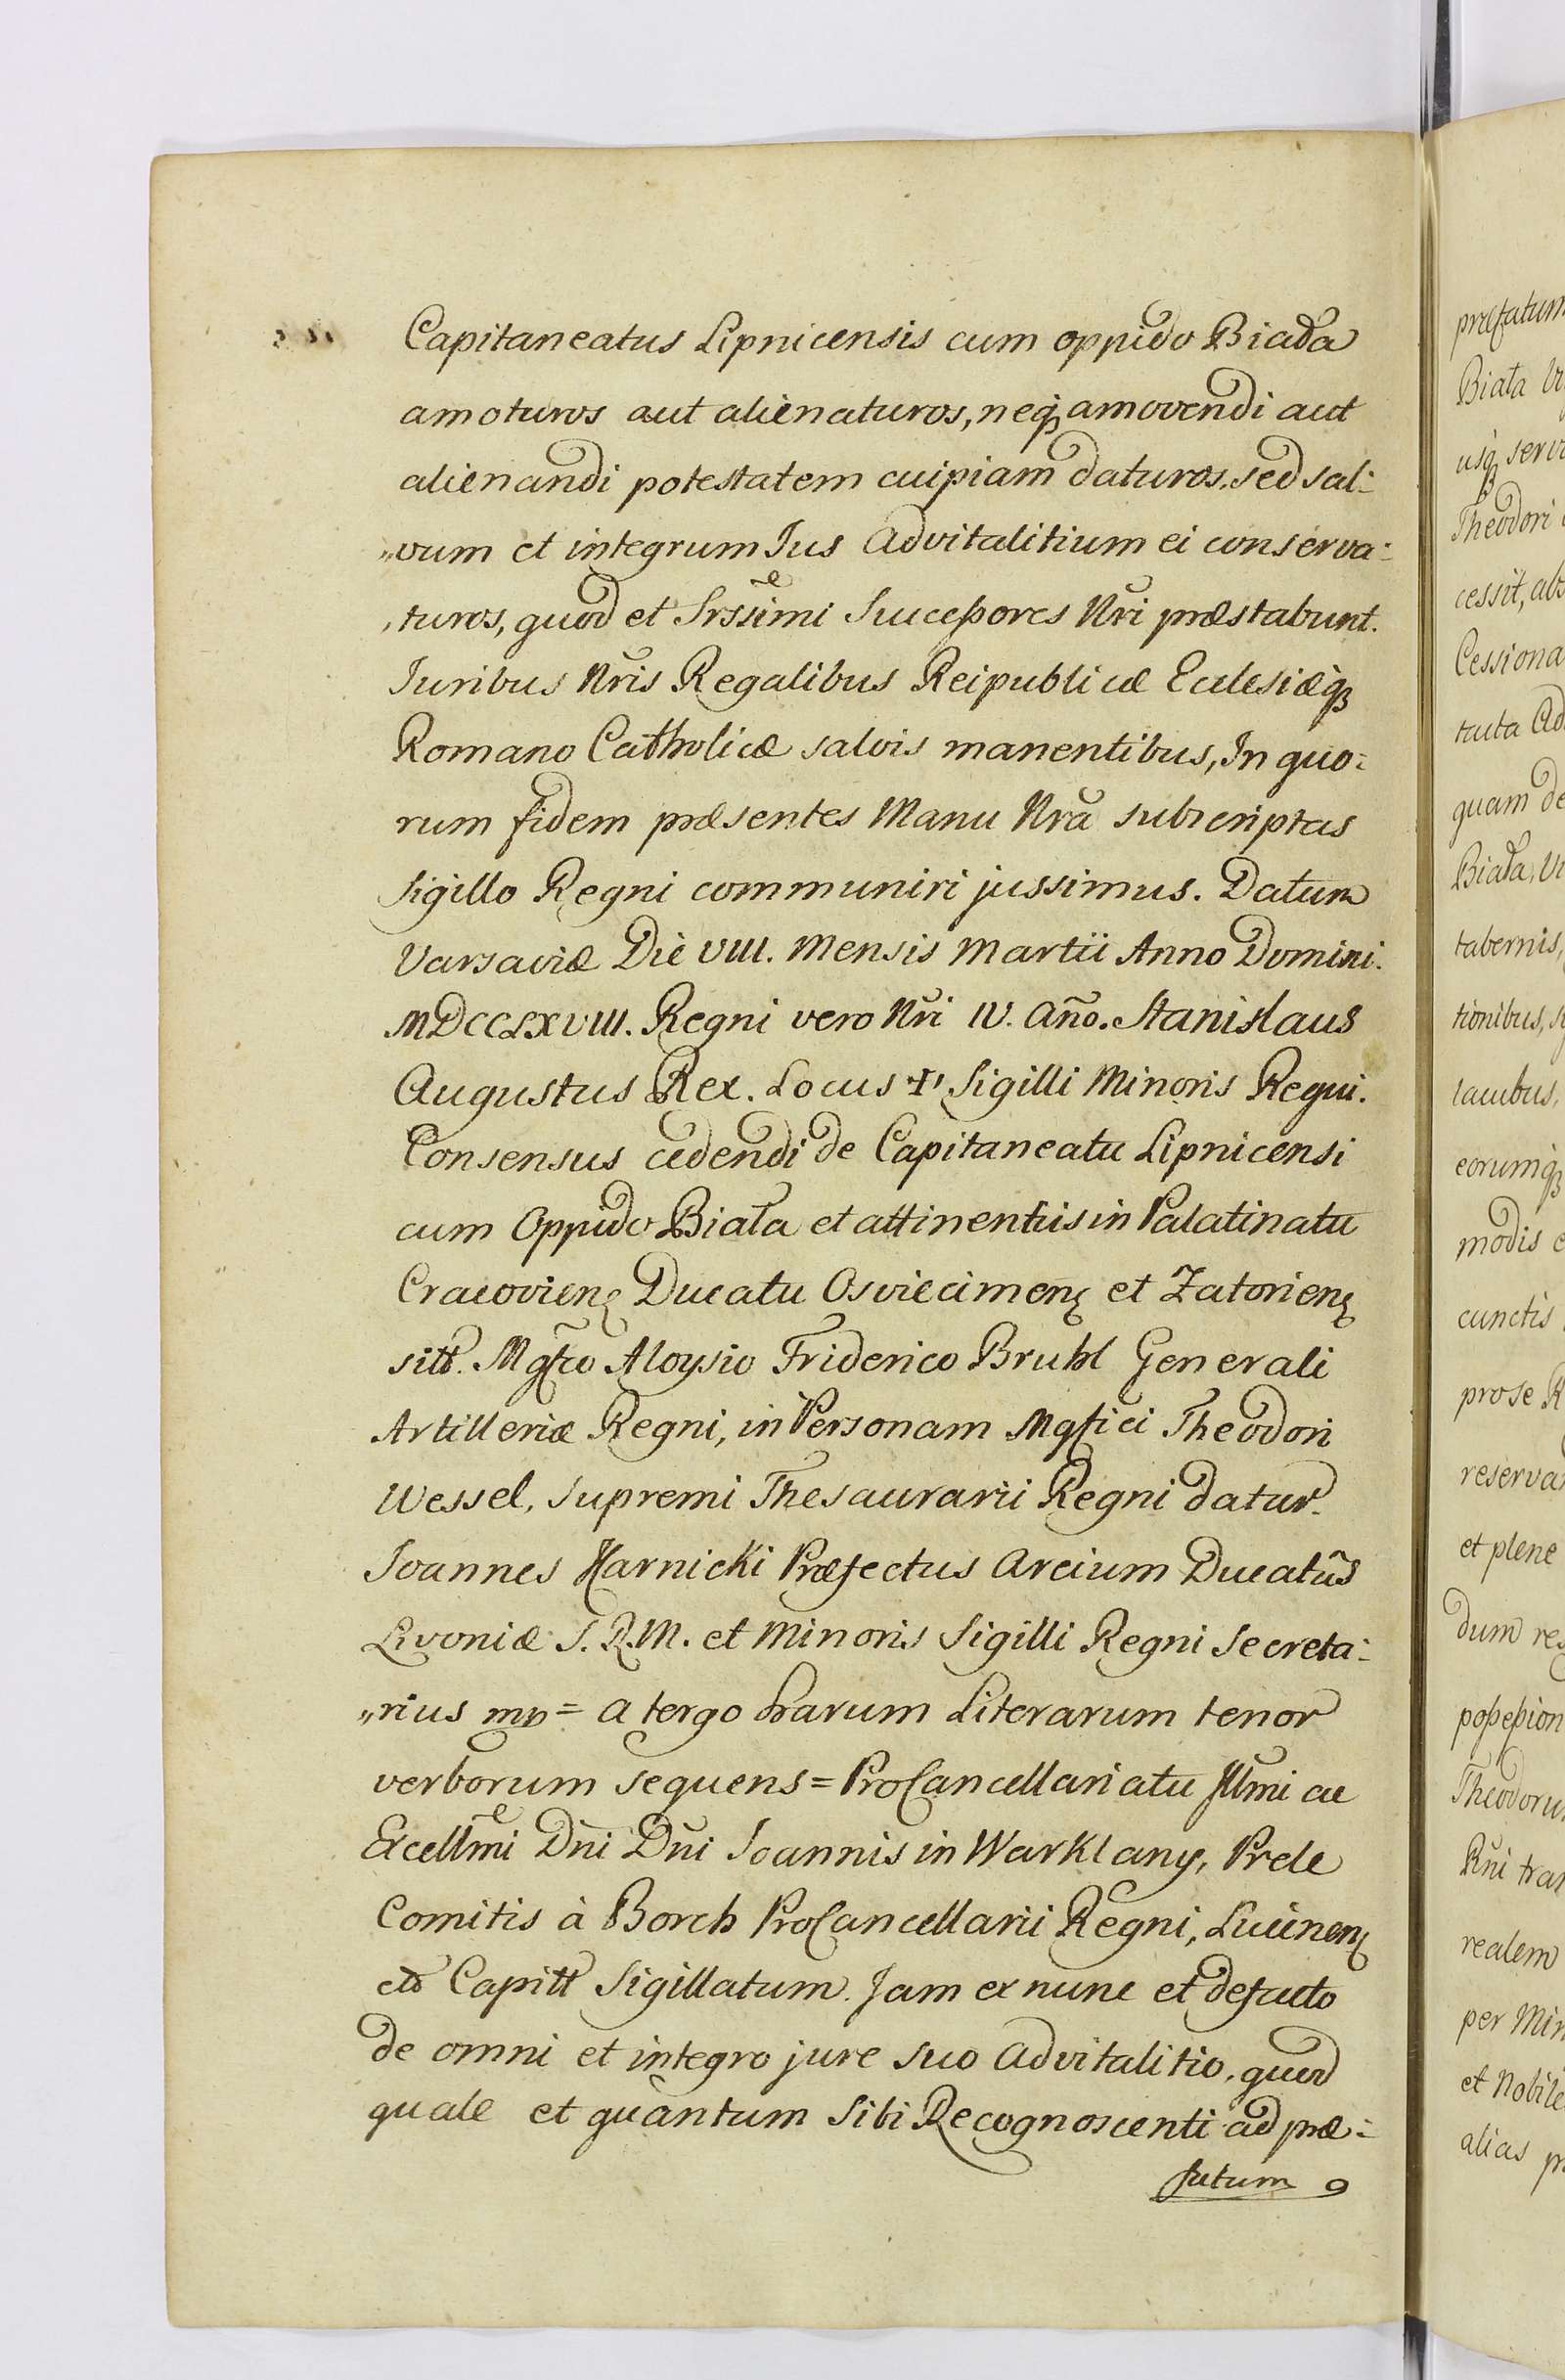 Capitaneatus Lipnicensis cum oppido Biała
amoturos aut alienaturos, neq; amovendi aut
alienandi potestatem cuipiam daturos, sed sal=
"vum et integrum Jus Advitalitium ei conserva=
"turos, quod et Srssĩmi Succeßores Nr̃i præstabunt.
Juribus Nr̃is Regalibus Reipublicæ Ecclesiæq;
Romano Catholicæ salvis manentibus, In quo=
rum fidem præsentes Manu Nrã subscriptas
Sigillo Regni communiri jussimus. Datum
Varsaviæ Die VIII. Mensis Martii Anno Domini.
MDCCLXVIII. Regni vero Nr̃i IV. Añno. Stanislaus
Augustus Rex. Locus ✝ Sigilli Minoris Regni.
Consensus cedendi de Capitaneatu Lipnicensi
cum Oppido Biała et attinentiis in Palatinatu
Cracovien; Ducatu Osviecimen; et Zatorien;
sitt. Mgfco Aloysio Friderico Bruhl Generali
Artilleriæ Regni, in Personam Mgfici Theodori
Wessel, Supremi Thesaurarii Regni datur.
Joannes Harnicki Præfectus Arcium Ducatũs
Livoniæ S. R. M. et Minoris Sigilli Regni Secreta=
"rius mp = a tergo harum Literarum tenor
verborum sequens = ProCancellariatu Jllm̃i ac
Excellm̃i Dñi Dñi Joannis in Warklany, Prele
Comitis à Borch ProCancellarii Regni, Lucinen;
etc Capitt Sigillatum. Jam ex nunc et defacto
de omni et integro jure suo Advitalitio, quod
quale et quantum Sibi Recognoscenti ad præ=
fatum
præfatum
Biała
usq;
Theodori
cessit,
Cessiona
tuta
quam de
Biała,
tabernis,
tionibus,
lacubus,
eorumq;
modis
cunctis
pro se
reserva
et plene
dum
poßeßion
Theodoru
realem
per
et Nobile
alias